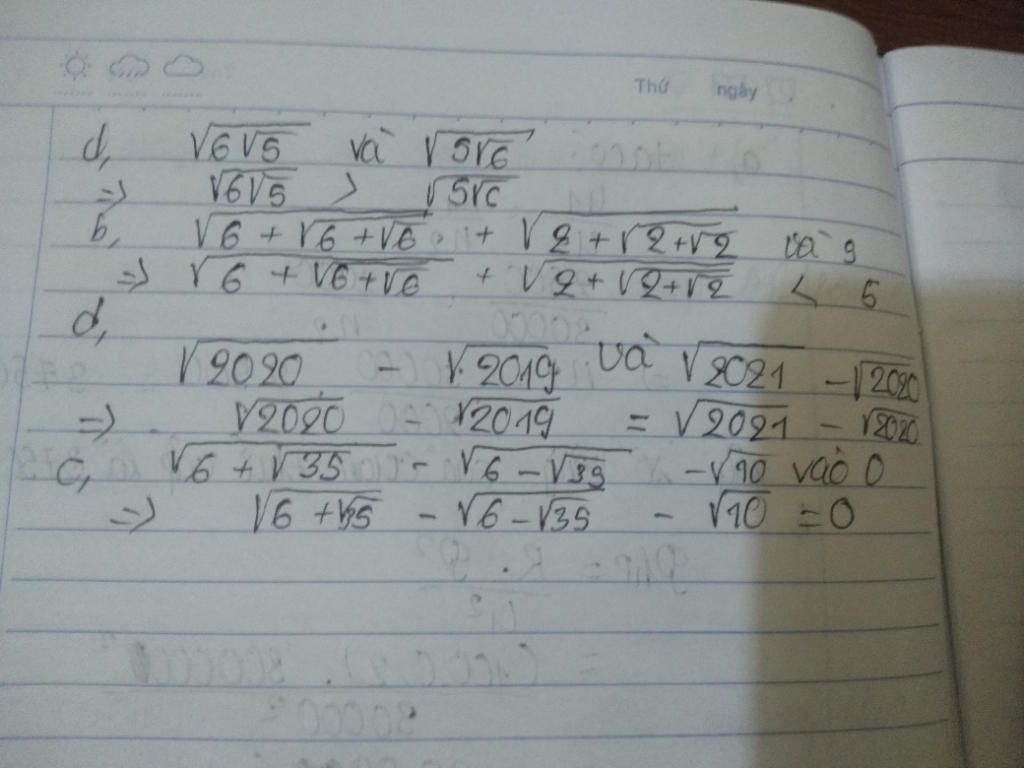 Thứ ngày
d, √6√5 và √5√6
=> √6√5 > √5√6
b, √6 + √6 + √6 + √2 + √2+√2 và 9
=> √6 + √6+√6 + √2+ √2+√2 < 6
d,
√2020 - √2019 và √2021 - √2020
=> √2020 - √2019 = √2021 - √2020
c, √6 + √35 - √6 - √35 - √10 vào 0
=> √6 + √35 - √6 - √35 - √10 = 0